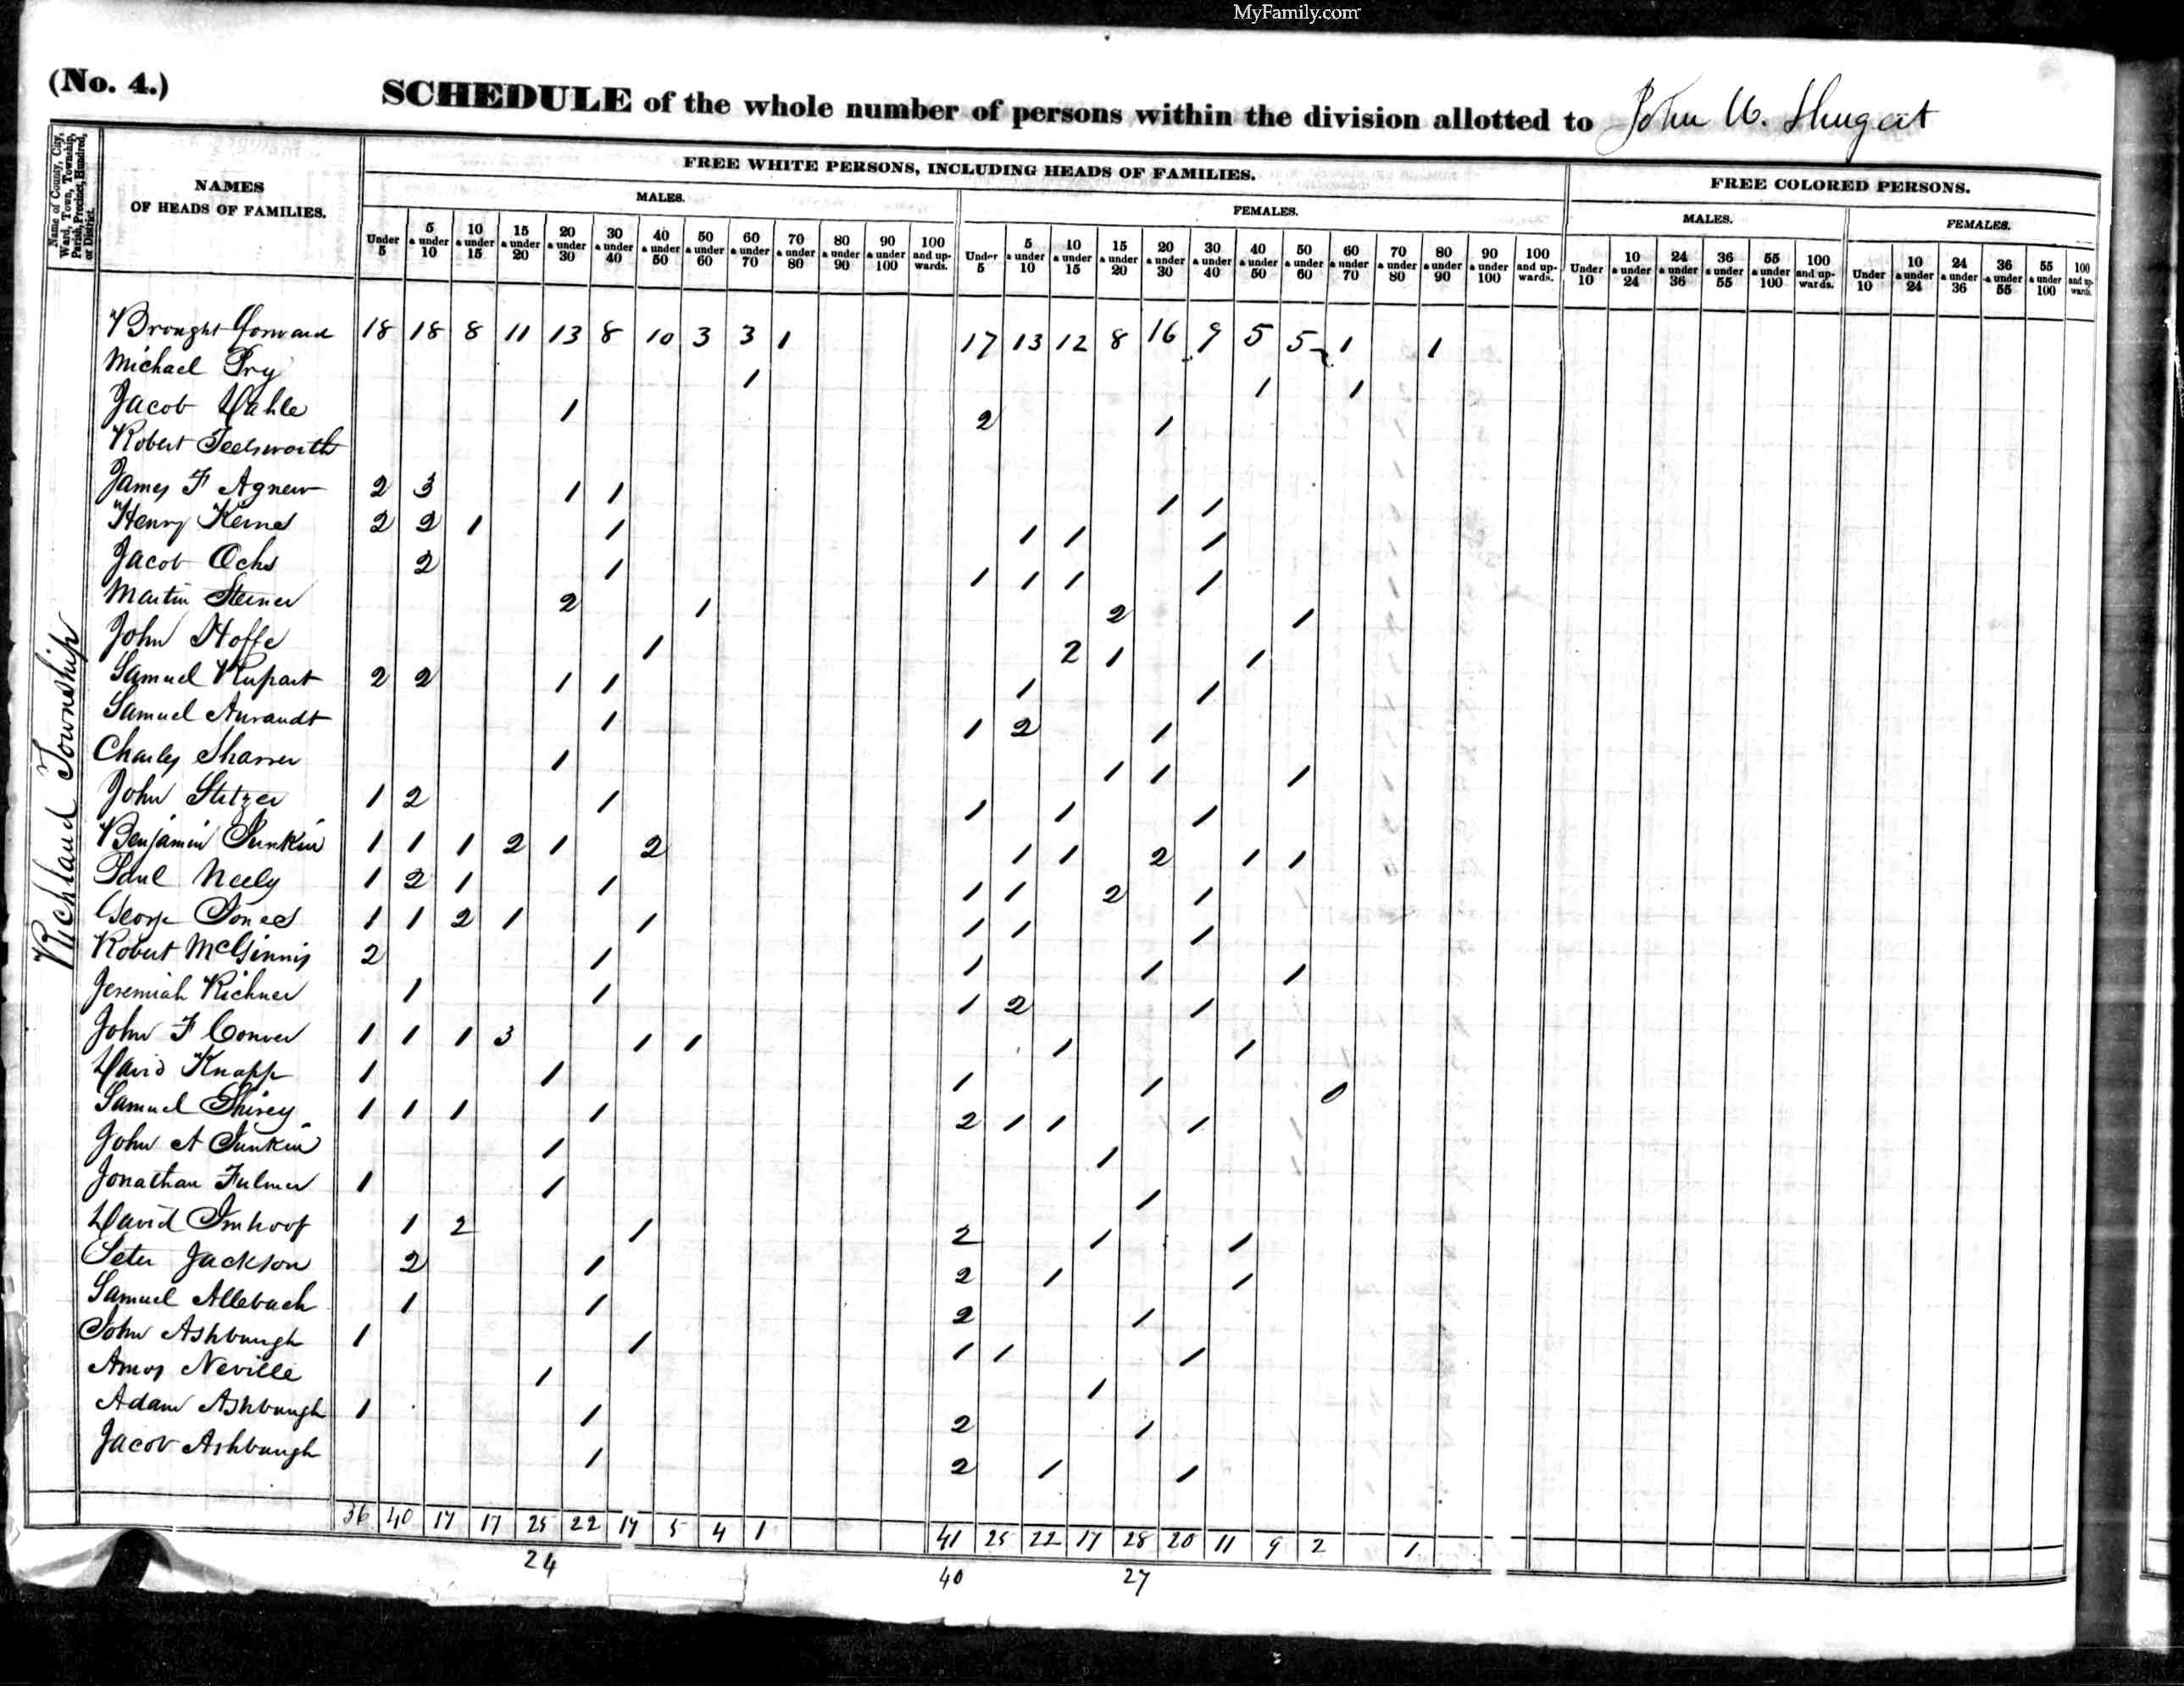 MyFamily.com
(No. 4.)
SCHEDULE of the whole number of persons within the division allotted to John W. Shugert
Name of County, City, Ward, Town, Township, Parish, Precinct, Hundred, or District.
NAMES OF HEADS OF FAMILIES.
FREE WHITE PERSONS, INCLUDING HEADS OF FAMILIES.
FREE COLORED PERSONS.
MALES. FEMALES. MALES. FEMALES.
Under 5 | 5 & under 10 | 10 & under 15 | 15 & under 20 | 20 & under 30 | 30 & under 40 | 40 & under 50 | 50 & under 60 | 60 & under 70 | 70 & under 80 | 80 & under 90 | 90 & under 100 | 100 and upwards.
Under 5 | 5 & under 10 | 10 & under 15 | 15 & under 20 | 20 & under 30 | 30 & under 40 | 40 & under 50 | 50 & under 60 | 60 & under 70 | 70 & under 80 | 80 & under 90 | 90 & under 100 | 100 and upwards.
Under 10 | 10 & under 24 | 24 & under 36 | 36 & under 55 | 55 & under 100 | 100 and upwards.
Under 10 | 10 & under 24 | 24 & under 36 | 36 & under 55 | 55 & under 100 | 100 and upwards
Richland Township
Brought Forward 18 18 8 11 13 8 10 3 3 1 17 13 12 8 16 9 5 5 1 1
Michael Pry 1 1 1
Jacob 1 2 1
Robert
James F Agnew 2 3 1 1 1 1
Henry Kerns 2 2 1 1 1 1 1
Jacob Ochs 2 1 1 1 1 1
Martin Sterner 2 1 2 1
John Hoffe 1 2 1 1
Samuel Rupart 2 2 1 1 1 1
Samuel Aurandt 1 1 2 1
Charles Sharrer 1 1 1 1
John Stetzer 1 2 1 1 1 1
Benjamin Junkin 1 1 1 2 1 2 1 1 2 1 1
Paul Neely 1 2 1 1 1 1 2 1
George Jones 1 1 2 1 1 1 1 1
Robert McGinnis 2 1 1 1 1
Jeremiah Richner 1 1 1 2 1
John F Conver 1 1 1 3 1 1 1 1
David Knapp 1 1 1 1 0
Samuel Shirey 1 1 1 1 2 1 1 1
John A Junkin 1 1
Jonathan Fulmer 1 1 1
David Imhoof 1 2 1 2 1 1
Peter Jackson 2 1 2 1 1
Samuel Allebach 1 1 2 1
John Ashbaugh 1 1 1 1 1
Amos Neville 1 1
Adam Ashbaugh 1 1 2 1
Jacob Ashbaugh 1 2 1 1
36 40 17 17 25 22 17 5 4 1 41 25 22 17 28 20 11 9 2 1
24 40 27